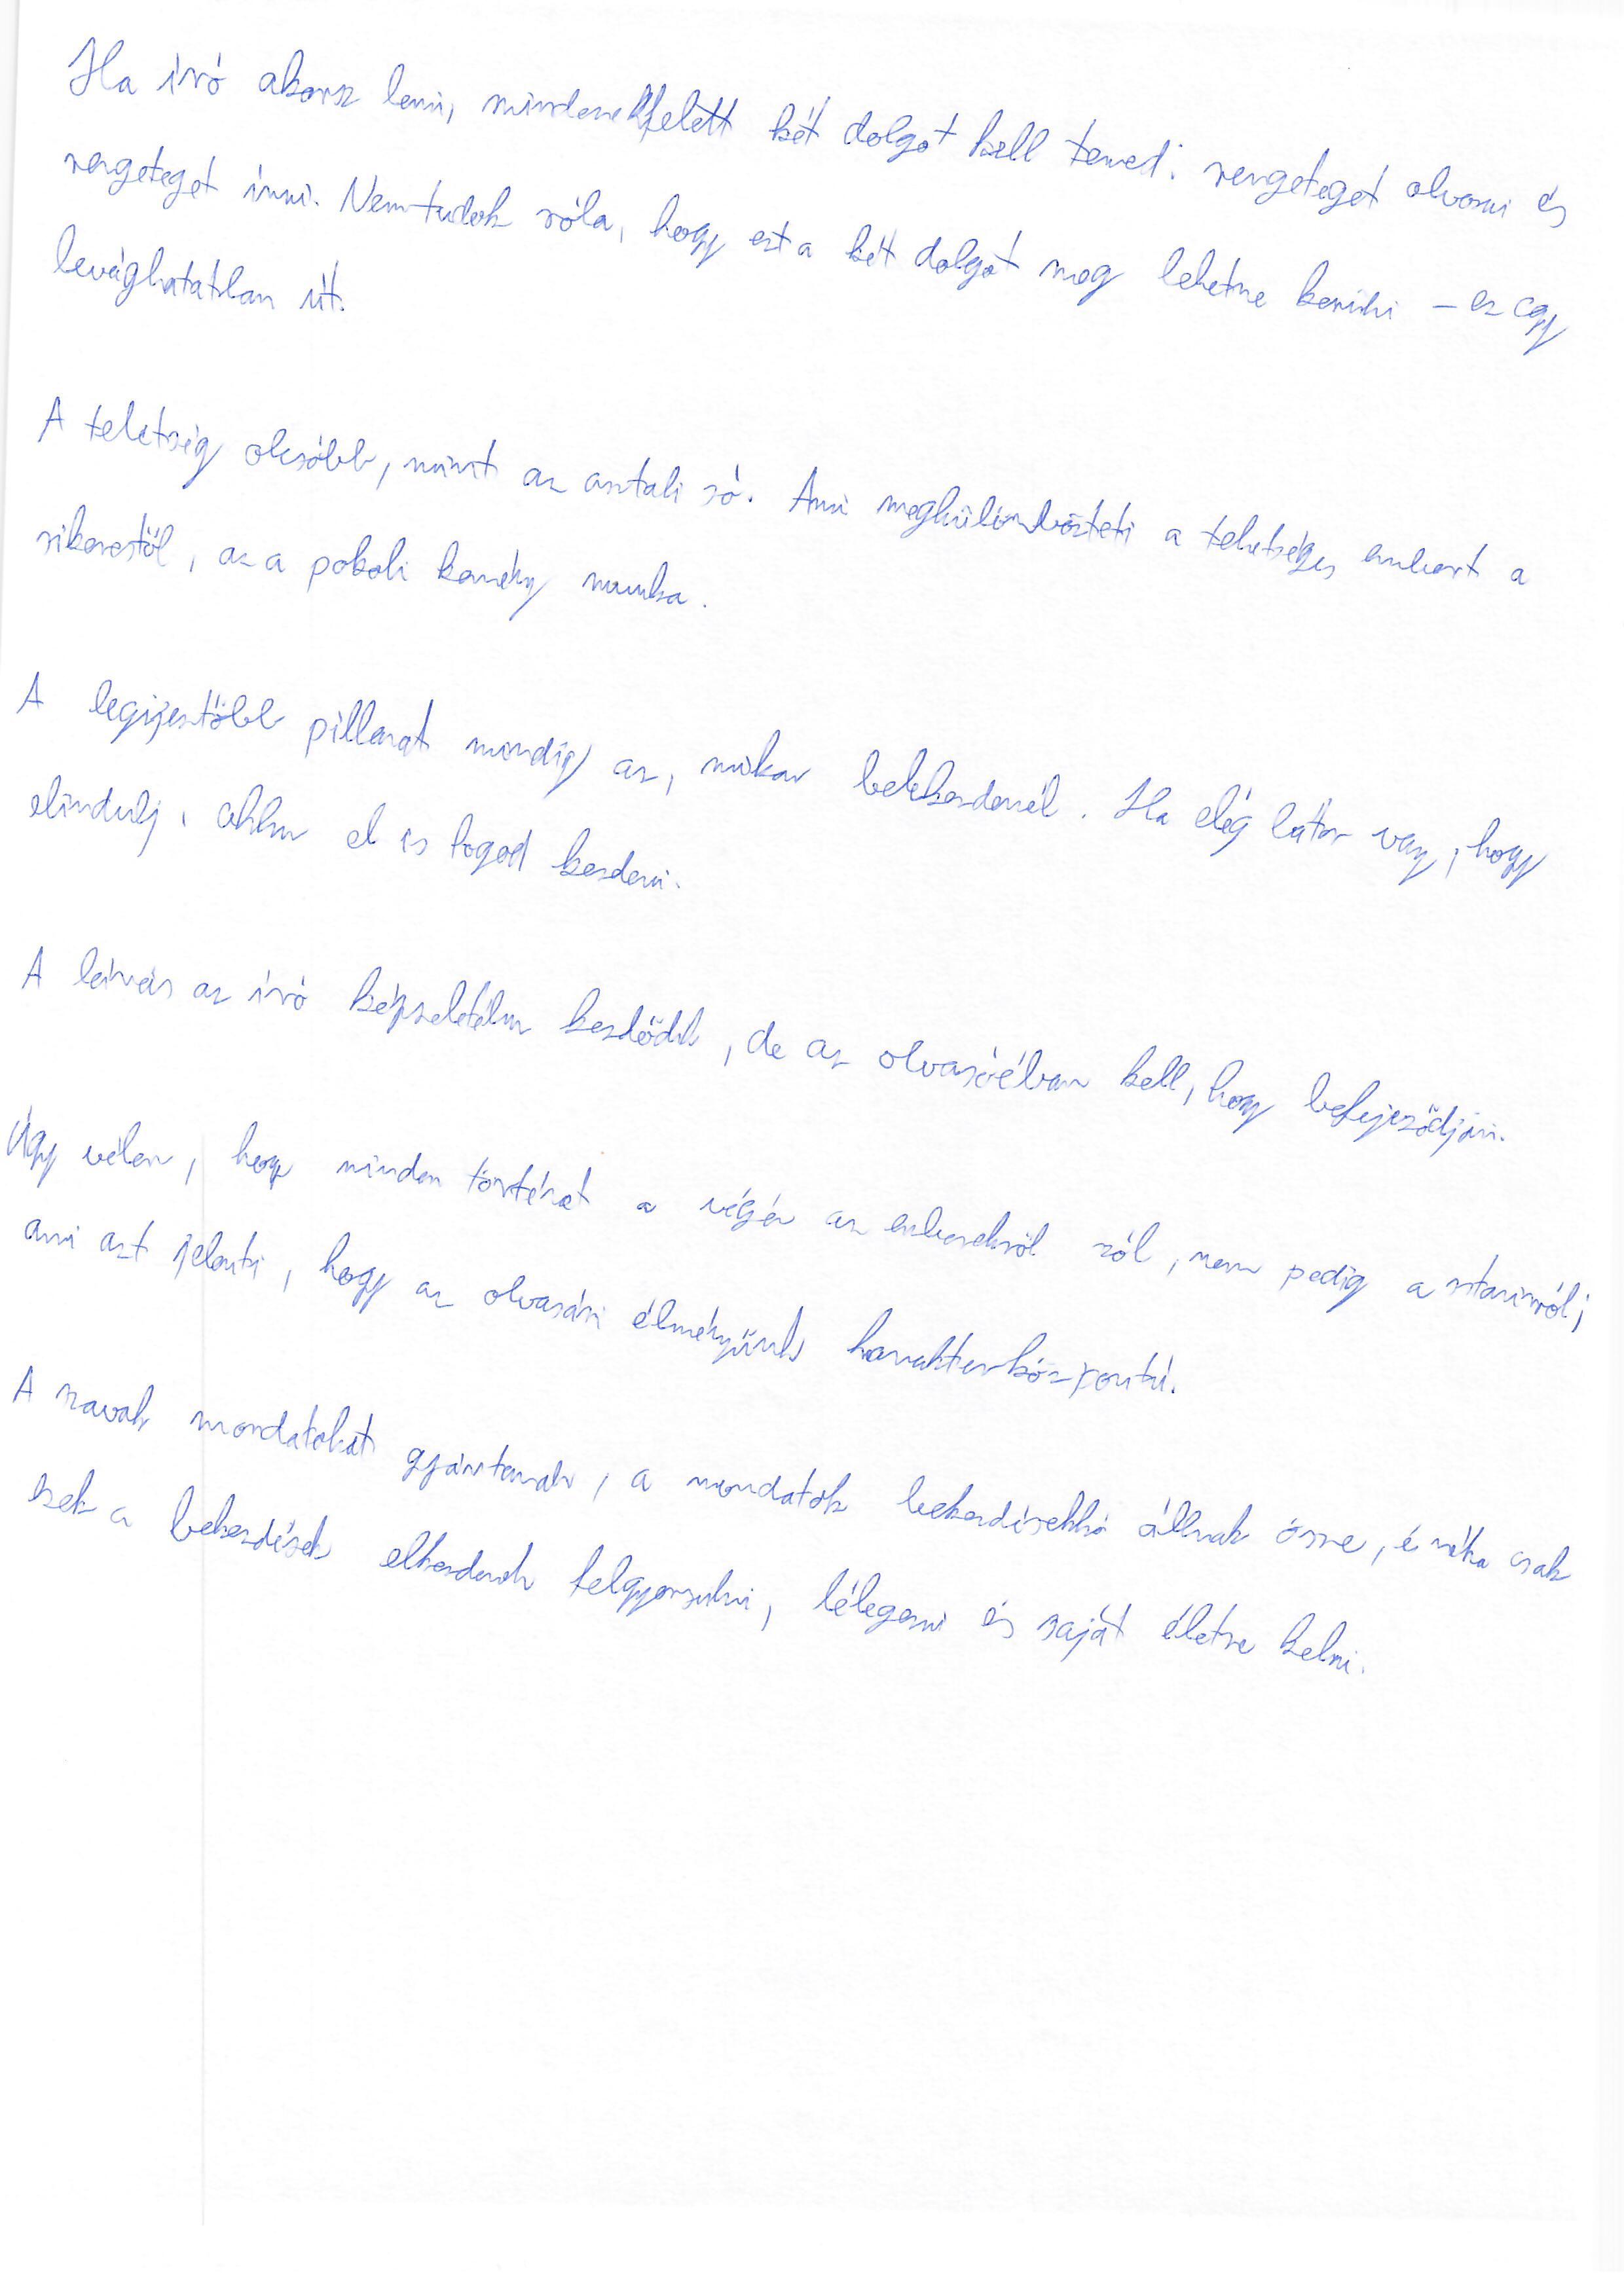 Ha író akarsz lenni, mindenekfelett két dolgot kell tenned: rengeteget olvasni és
rengeteget írni. Nem tudok róla, hogy ezt a két dolgot meg lehetne kerülni – ez egy
levághatatlan út.
A tehetség olcsóbb, mint az asztali só. Ami megkülönbözteti a tehetséges embert a
sikerestől, az a pokoli kemény munka.
A legijesztőbb pillanat mindig az, mikor belekezdenél. Ha elég bátor vagy, hogy
elindulj, akkor el is fogod kezdeni.
A leírás az író képzeletében kezdődik, de az olvasóéban kell, hogy befejeződjön.
Úgy vélem, hogy minden történet a végén az emberekről szól, nem pedig a sztoriról;
ami azt jelenti, hogy az olvasási élményünk karakterközpontú.
A szavak mondatokat gyártanak, a mondatok bekezdésekké állnak össze, és néha csak
ezek a bekezdések elkezdenek felgyorsulni, lélegezni és saját életre kelni.